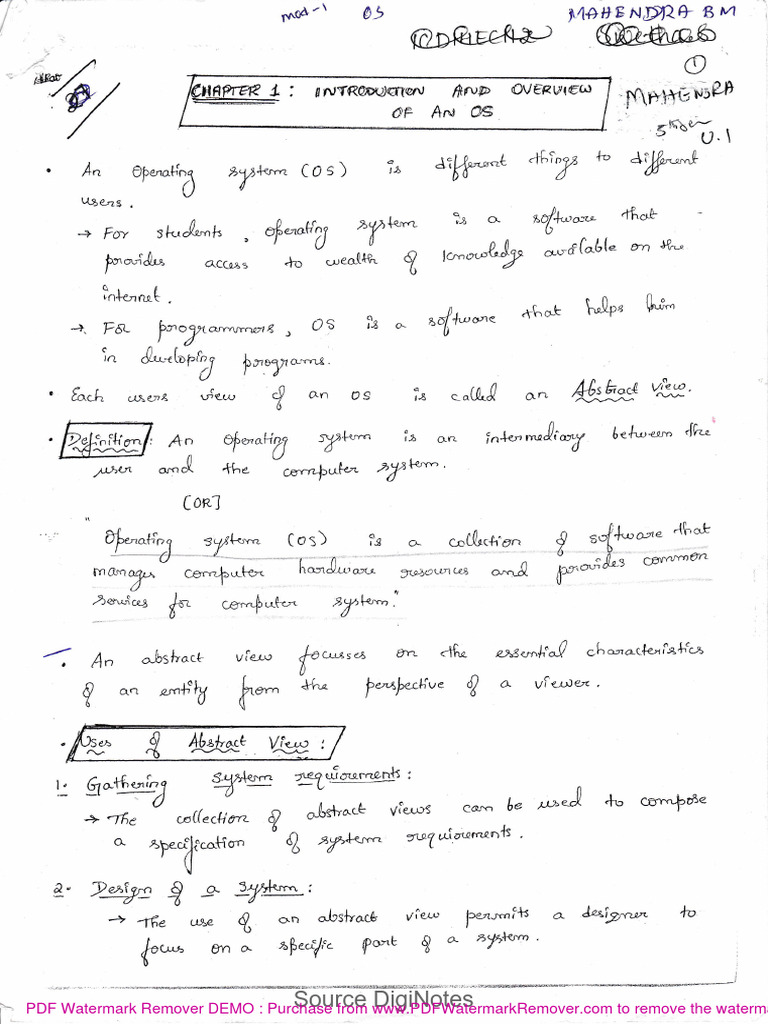 mod-1 OS MAHENDRA BM
①
CHAPTER 1: INTRODUCTION AND OVERVIEW
OF AN OS
MAHENDRA
5th sem
U.1
• An operating system (OS) is different things to different
users.
→ For students, operating system is a software that
provides access to wealth of knowledge available on the
internet.
→ For programmers, OS is a software that helps him
in developing programs.
• Each users view of an OS is called an Abstract View.
• Definition: An operating system is an intermediary between the
user and the computer system.
[OR]
"Operating system (OS) is a collection of software that
manages computer hardware resources and provides common
services for computer system."
• An abstract view focusses on the essential characteristics
of an entity from the perspective of a viewer.
• Uses of Abstract View:
1. Gathering system requirements:
→ The collection of abstract views can be used to compose
a specification of system requirements.
2. Design of a system:
→ The use of an abstract view permits a designer to
focus on a specific part of a system.
Source DigiNotes
PDF Watermark Remover DEMO : Purchase from www.PDFWatermarkRemover.com to remove the waterma